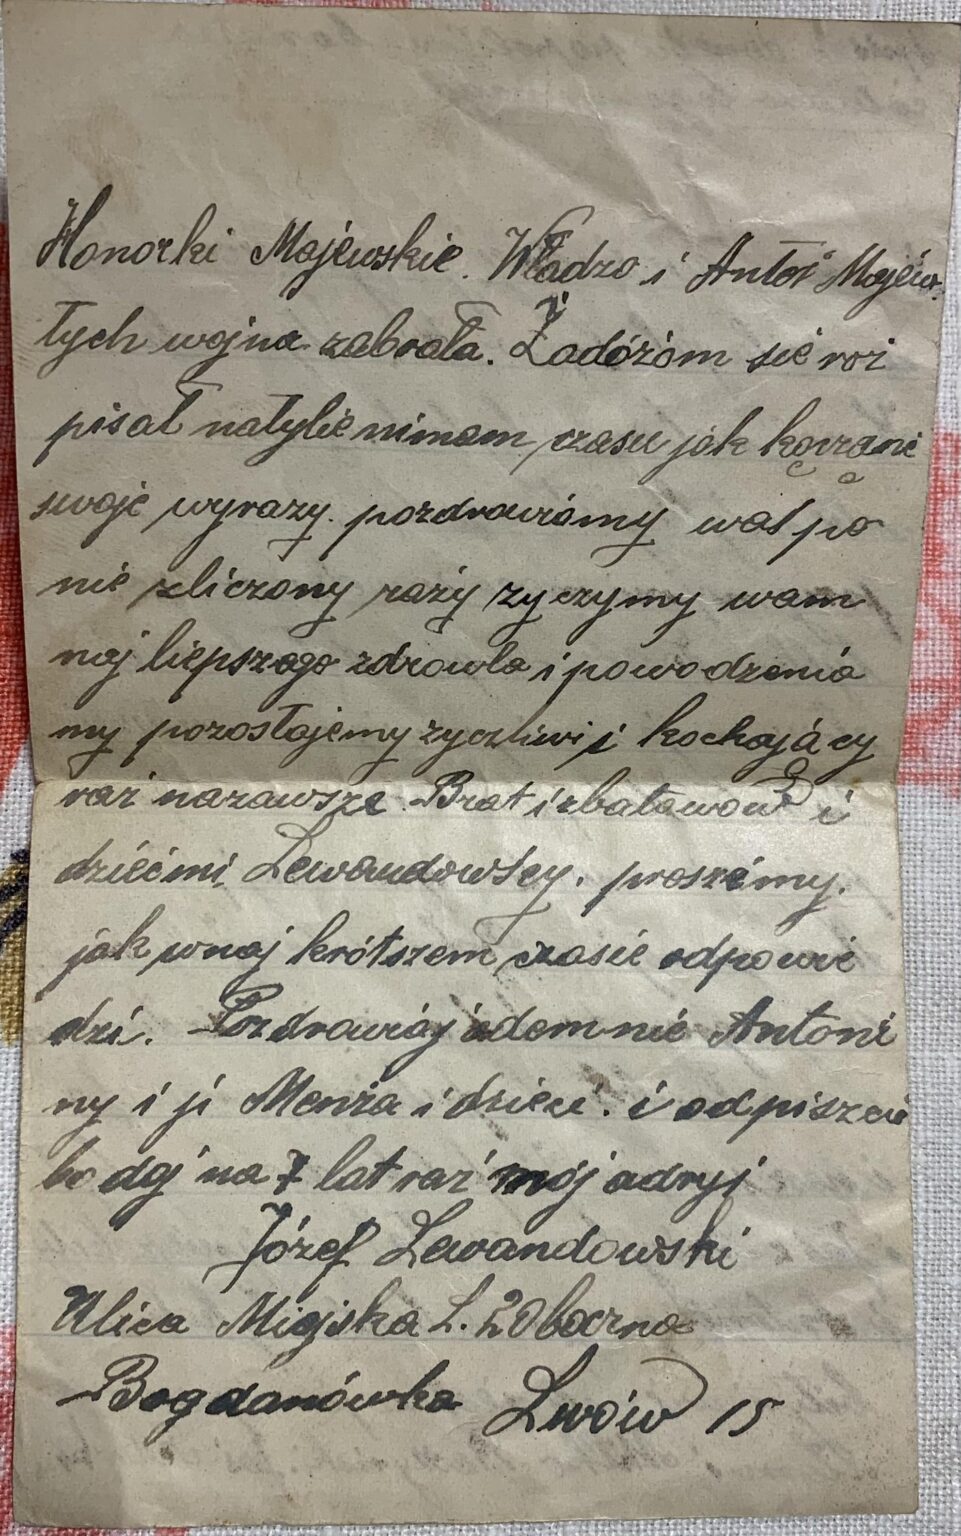 Honorki Majewskie. Władzo i Antoś Majéw.
tych wojna zabrała. Żadóżom sié roz
pisał natylié nimam czasu jak
swojé wyrazy. pozdrowiomy was po
nié zliczony raży zyczymy wam
naj liepszego zdrowla i powodzenia
my pozostajemy zyczliwi i kochają cy
raz nazawsze. Brat izbatowow i
dziećmi Lewandowscy. proszémy.
jak wnaj krótszem czasié odpowié
dzi. Pozdrowiaj odemnié Antoni
ny i ji Menża i dzieci. i odpiszcié
bo dgj na 7 lat raz mój adryj
Józef Lewandowski
Ulica Miejska L. 2 Oboczna
Bogdanówka Lwów 15